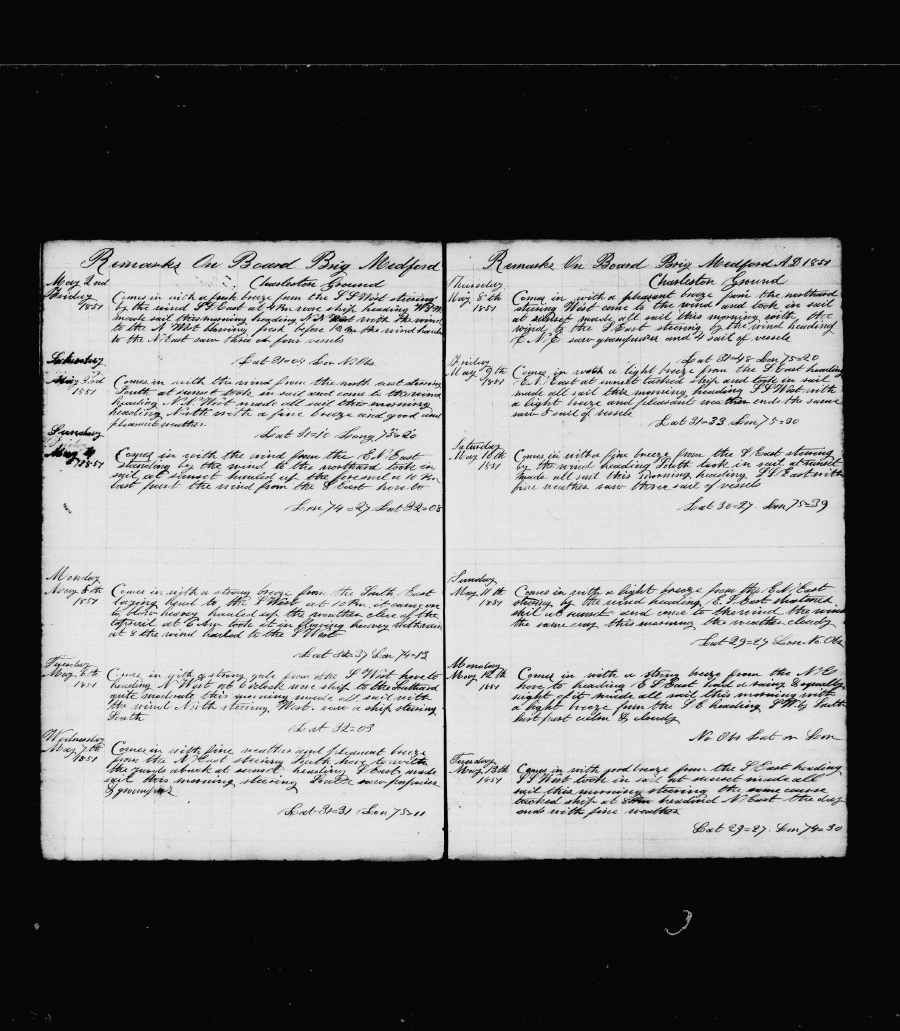 Remarks On Board Brig Medford
Charleston Ground
May 2nd
Friday
1851
Comes in with a fresh breeze from the S S West steering
by the wind S S East at 4 Pm wore ship heading
made sail this morning heading N N West with the wind
to the N West blowing fresh before 10 the wind
to the N East saw three or four vessels
Lat 31=04 Lon No Obs
Saturday
May 3rd
1851
Comes in with the wind from the north east steering
South at sunset took in sail and come to the wind
heading N N West made all sail this morning
heading North with a fine breeze and good and
pleasant weather
Lat 31=10 Long 75=20
Sunday
May 4
1851
Comes in with the wind from the E N East
standing by the wind to the northard took in
sail at sunset hauled up the foresail at 10 Pm
last part the wind from the S East hove to
Lon 74=27 Lat 32=08
Monday
May 5th
1851
Comes in with a strong breeze from the South East
to the S West at 10 Pm it came on
to blow heavy hauled up the weather clue of the
topsail at 6 Am took it in blowing heavy
at 8 the wind to the S West
Lat 32=37 Lon 74=13
Tuesday
May 6th
1851
Comes in with a strong gale from the S West hove to
heading N West at 6 oclock wore ship to the Southard
quite moderate this morning made all sail with
the wind North steering West saw a ship steering
South
Lat 32=03
Wednesday
May 7th
1851
Comes in with fine weather and pleasant breeze
from the N East steering South hove to with
the yards aback at sunset heading S East made
sail this morning steering South saw porpoises
& grampus
Lat 31=31 Lon 75=11
Remarks On Board Brig Medford A.D 1851
Charleston Ground
Thursday
May 8th
1851
Comes in with a pleasant breeze from the northard
steering West come to the wind and took in sail
at sunset made all sail this morning with the
wind to the S East steering by the wind heading
E N E saw grampuses and 4 sail of vessels
Lat 31=48 Lon 75=20
Friday
May 9th
1851
Comes in with a light breeze from the S East heading
E N East at sunset tacked ship and took in sail
made all sail this morning heading S S West with
a light breeze and pleasant weather ends the same
saw 8 sail of vessels
Lat 31=33 Lon 75=30
Saturday
May 10th
1851
Comes in with a fine breeze from the S East steering
by the wind heading South took in sail at sunset
made all sail this morning heading East with
fine weather saw three sail of vessels
Lat 30=37 Lon 75=39
Sunday
May 11th
1851
Comes in with a light breeze from the E N East
steering by the wind heading E S East shortened
sail at sunset and come to the wind the wind
the same way this morning the weather cloudy
Lat 29=27 Lon No Obs
Monday
May 12th
1851
Comes in with a strong breeze from the N E
hove to heading E S East had a rainy & squally
night of it made all sail this morning with
a light breeze from the S E heading S W by South
last part calm & cloudy
No Obs Lat or Lon
Tuesday
May 13th
1851
Comes in with good breeze from the S East heading
S S West took in sail at sunset made all
sail this morning steering the same course
tacked ship at heading N East the day
ends with fine weather
Lat 29=27 Lon 74=30